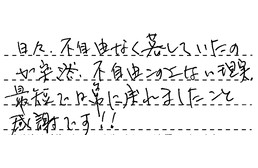 日々、不自由なく暮していたの
が突然、不自由この上ない現実。
最短で日常に戻れましたこと
感謝です!!